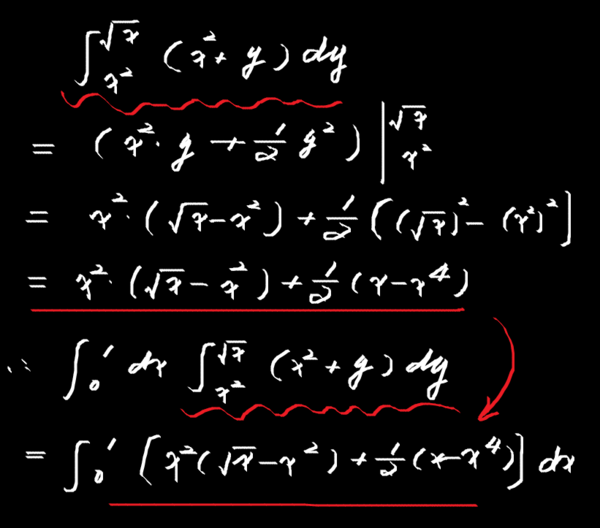 ∫_{x²}^{√x} (x² + y) dy
= (x² · y + 1/2 y²) |_{x²}^{√x}
= x² · (√x - x²) + 1/2 [(√x)² - (x²)²]
= x² · (√x - x²) + 1/2 (x - x⁴)
∴ ∫₀¹ dx ∫_{x²}^{√x} (x² + y) dy
= ∫₀¹ [x²(√x - x²) + 1/2 (x - x⁴)] dx